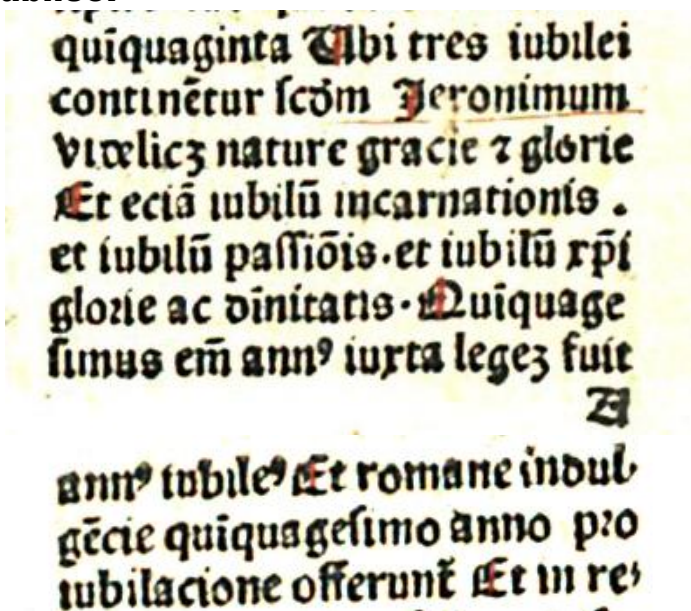 quīquaginta Ubi tres iubilei
continētur ſcḋm Jeronimum
videlicꝫ nature gracie ⁊ glorie
Et eciā iubilū incarnationis .
et iubilū paſſiōis·et iubilū xp̄i
gloꝛie ac dīnitatis·Quīquage
ſimus em̄ annꝰ iuxta legeꝫ fuit
A
annꝰ iubileꝰ Et romane indul
gēcie quīquageſimo anno pꝛo
iubilacione offerunt̄ Et in re